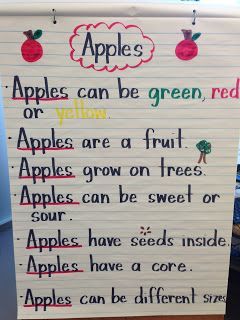 Apples
· Apples can be green, red
or yellow.
· Apples are a fruit.
· Apples grow on trees.
· Apples can be sweet or
sour.
· Apples have seeds inside.
· Apples have a core.
· Apples can be different sizes